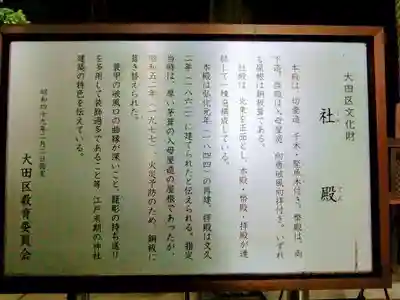 大田区文化財
社殿
でん
本殿は、切妻造、千木・堅魚木付き、幣殿は、両
下造、拝殿は入母屋造、向唐破風向拝付き、いずれ
も屋根は銅板葺である。
社殿は、東を正面とし、本殿・幣殿・拝殿が連
続して一棟を構成している。
本殿は弘化元年（一八四四）の再建、拝殿は文久
二年（一八六二）に建てられたと伝えられる。指定
当時は、厚い茅葺の入母屋造の屋根であったが、
昭和五二年（一九七七）、火災予防のため、銅板に
葺き替えられた。
装甲の破風口の曲線が深いこと、籠彫の持ち送り
を多用して装飾過多であること等、江戸末期の神社
建築の特色を伝えている。
昭和四十九年二月二日指定
大田区教育委員会